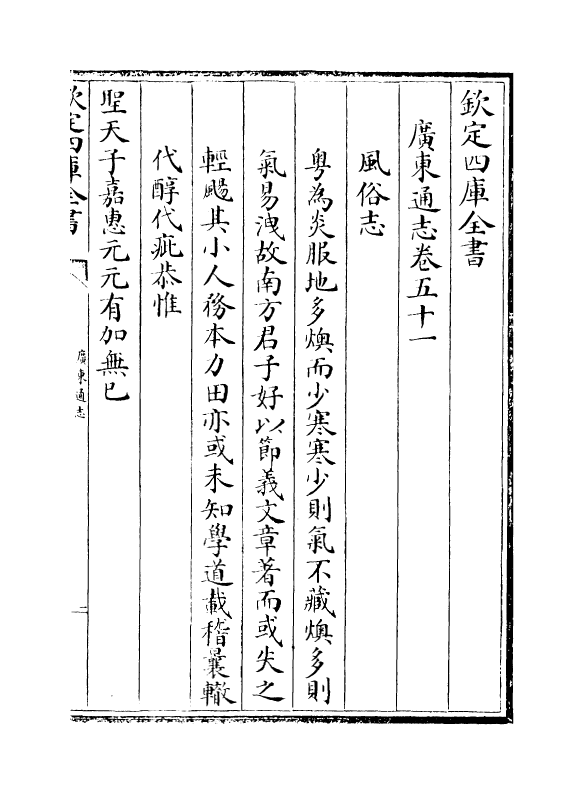 欽定四庫全書
廣東通志卷五十一
風俗志
粤為炎服地多燠而少寒寒少則氣不藏燠多則
氣易洩故南方君子好以節義文章著而或失之
輕颺其小人務本力田亦或未知學道載稽曩轍
代醇代疵恭惟
聖天子嘉惠元元有加無已
欽定四庫全書
廣東通志
一